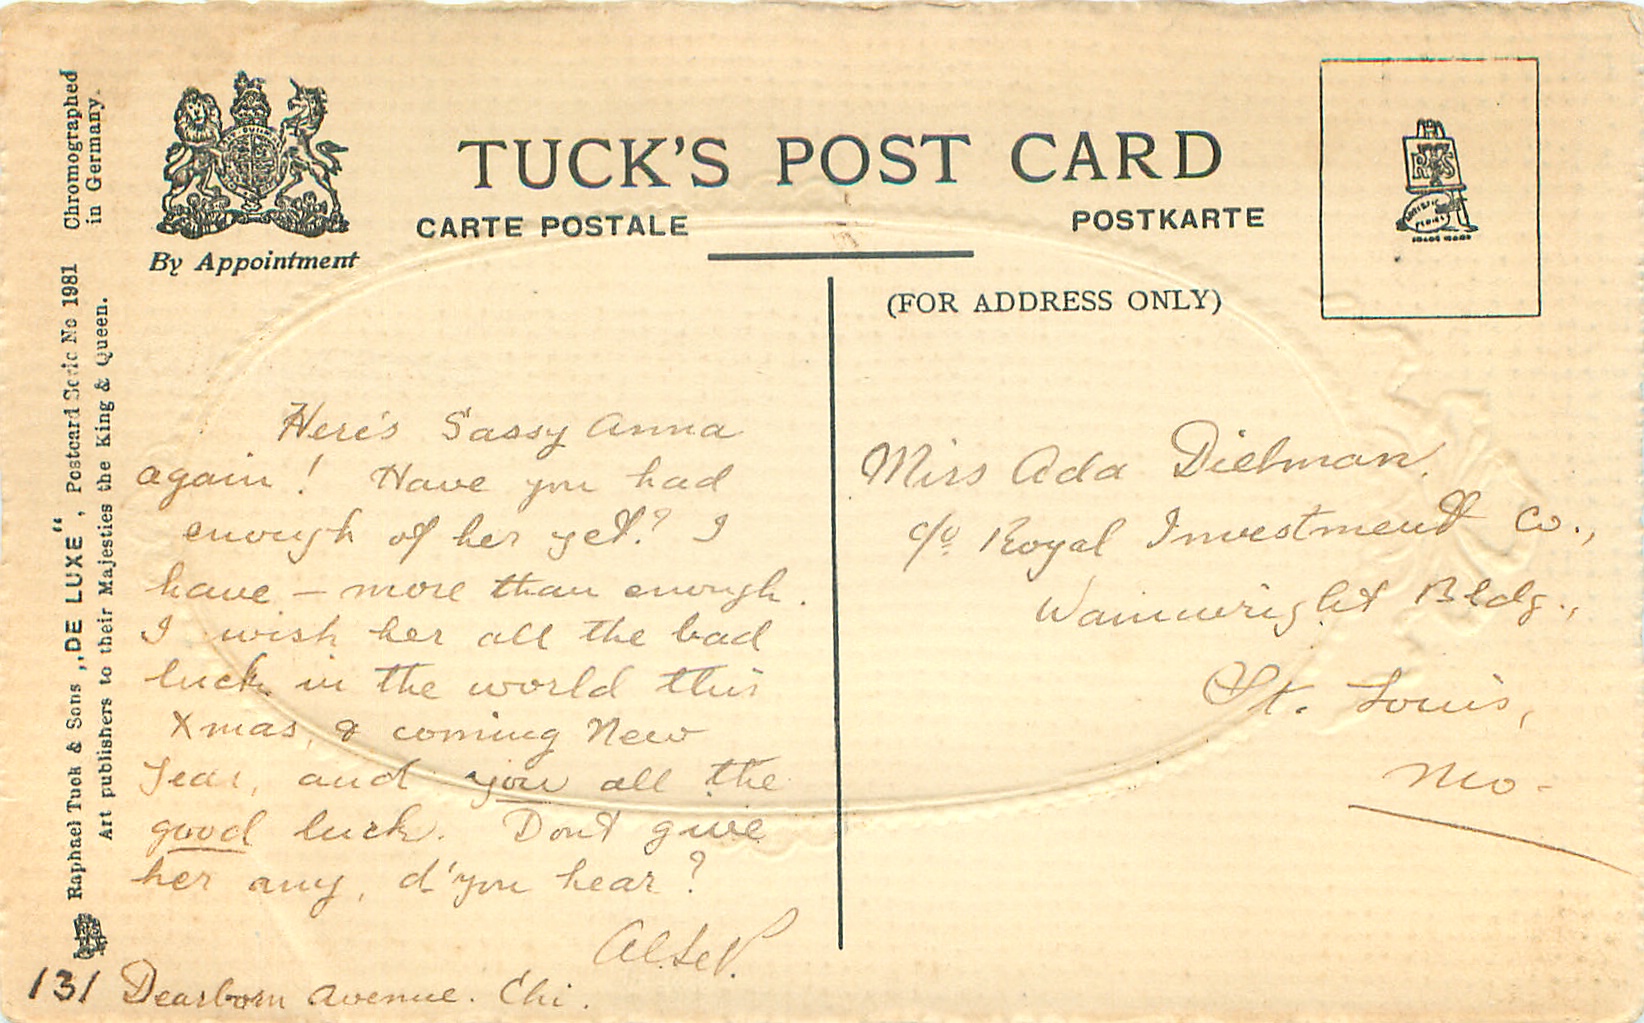 TUCK'S POST CARD
CARTE POSTALE
POSTKARTE
By Appointment
(FOR ADDRESS ONLY)
Chromographed
in Germany.
Raphael Tuck & Sons „DE LUXE“, Postcard Serie No 1981
Art publishers to their Majesties the King & Queen.
Here's Sassy Anna
again! Have you had
enough of her yet? I
have – more than enough.
I wish her all the bad
luck in the world this
Xmas, & coming New
Year, and you all the
good luck. Dont give
her any, d'you hear?
131 Dearborn Avenue. Chi.
Miss Ada Dielman.
c/o Royal Investment Co.,
Wainwright Bldg.,
St. Louis,
Mo-